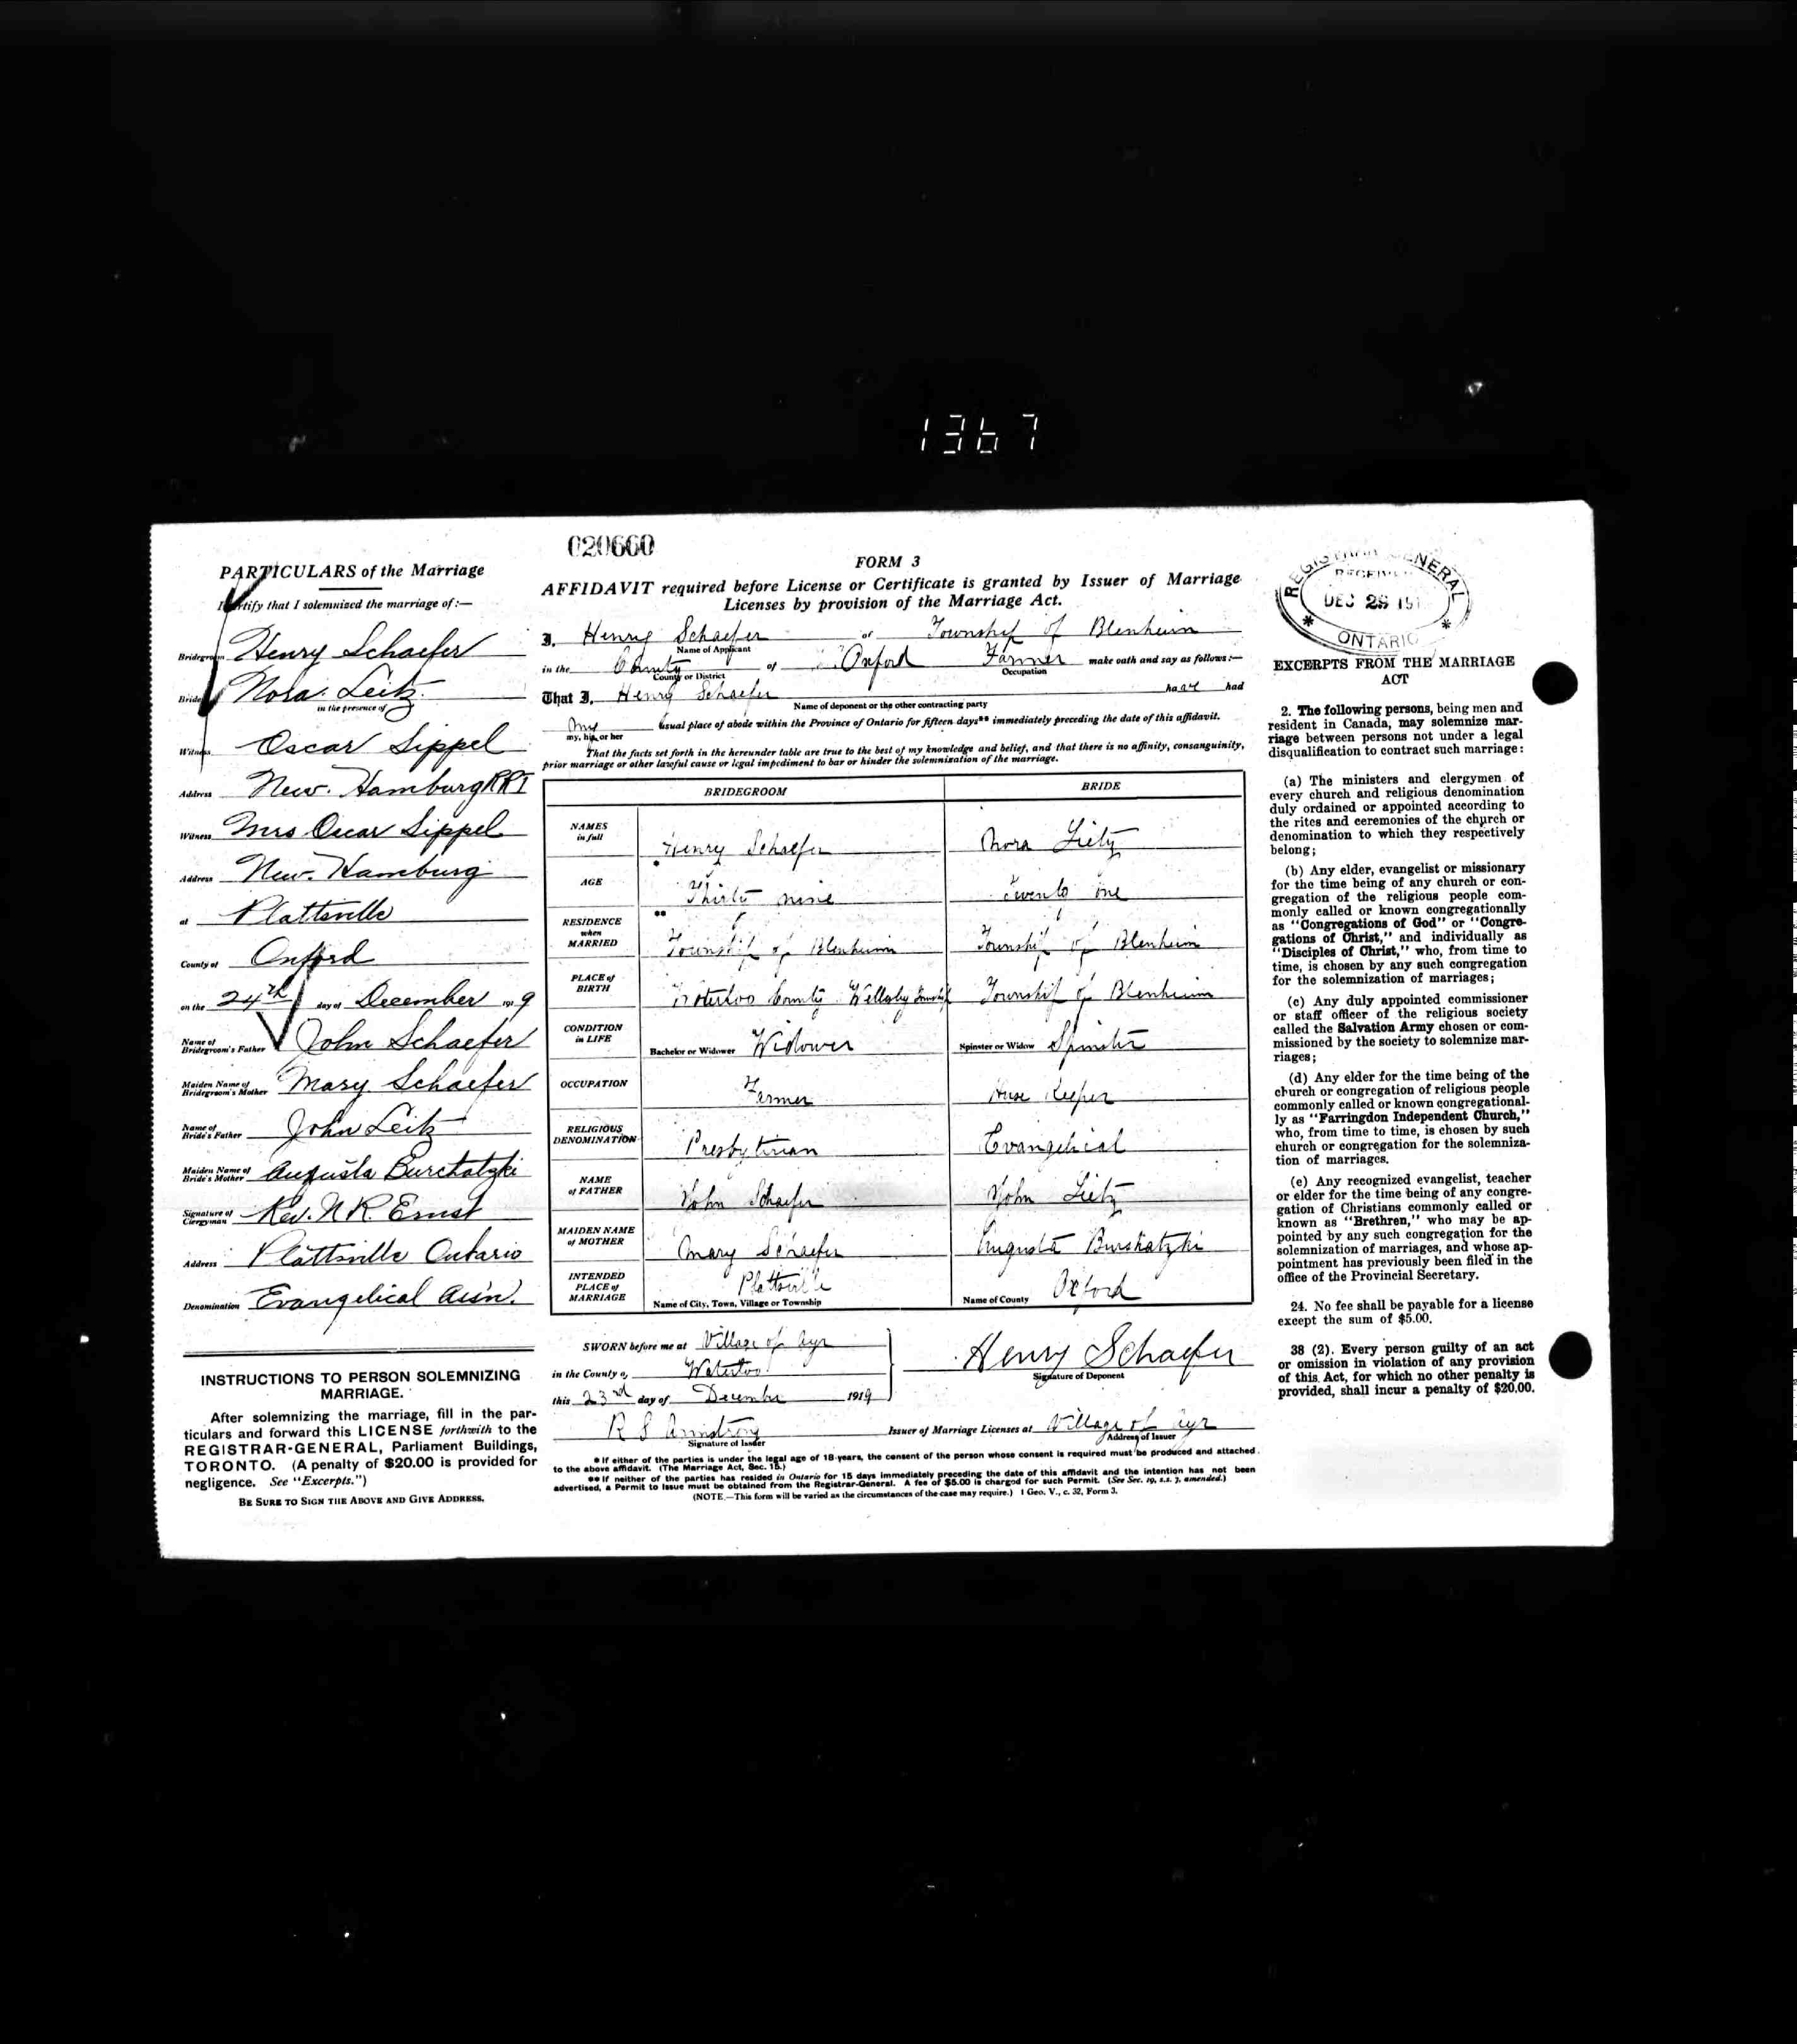 1367
020660
PARTICULARS of the Marriage
I certify that I solemnized the marriage of:—
Bridegroom Henry Schaefer
Bride Nora Leitz.
in the presence of
Witness Oscar Sippel
Address New. Hamburg RR1
Witness Mrs Oscar Sippel
Address New. Hamburg
at Plattsville
County of Oxford
on the 24th day of December 1919
Name of Bridegroom's Father John Schaefer
Maiden Name of Bridegroom's Mother Mary Schaefer
Name of Bride's Father John Leitz
Maiden Name of Bride's Mother Augusta Burchatzki
Signature of Clergyman Rev. N R. Ernst
Address Plattsville Ontario
Denomination Evangelical Ass'n.
INSTRUCTIONS TO PERSON SOLEMNIZING
MARRIAGE.
After solemnizing the marriage, fill in the par-
ticulars and forward this LICENSE forthwith to the
REGISTRAR-GENERAL, Parliament Buildings,
TORONTO. (A penalty of $20.00 is provided for
negligence. See "Excerpts.")
BE SURE TO SIGN THE ABOVE AND GIVE ADDRESS.
FORM 3
AFFIDAVIT required before License or Certificate is granted by Issuer of Marriage
Licenses by provision of the Marriage Act.
I, Henry Schaefer of Township of Blenheim
Name of Applicant
in the County of Oxford Farmer make oath and say as follows:—
County or District Occupation
That I, Henry Schaefer have had
Name of deponent or the other contracting party
my usual place of abode within the Province of Ontario for fifteen days** immediately preceding the date of this affidavit.
my, his or her
That the facts set forth in the hereunder table are true to the best of my knowledge and belief, and that there is no affinity, consanguinity,
prior marriage or other lawful cause or legal impediment to bar or hinder the solemnization of the marriage.
BRIDEGROOM BRIDE
NAMES in full Henry Schaefer Nora Lietz
AGE * Thirty nine Twenty one
RESIDENCE when MARRIED ** Township of Blenheim Township of Blenheim
PLACE of BIRTH Waterloo County Township Township of Blenheim
CONDITION in LIFE Bachelor or Widower Widower Spinster or Widow Spinster
OCCUPATION Farmer House Keeper
RELIGIOUS DENOMINATION Presbyterian Evangelical
NAME of FATHER John Schaefer John Lietz
MAIDEN NAME of MOTHER Mary Schaefer Augusta Burskatzki
INTENDED PLACE of MARRIAGE Plattsville Oxford
Name of City, Town, Village or Township Name of County
SWORN before me at Village of Ayr
in the County of Waterloo
this 23rd day of December 1919
Henry Schaefer
Signature of Deponent
R S Armstrong Issuer of Marriage Licenses at Village of Ayr
Signature of Issuer Address of Issuer
* If either of the parties is under the legal age of 18 years, the consent of the person whose consent is required must be produced and attached
to the above affidavit. (The Marriage Act, Sec. 15.)
** If neither of the parties has resided in Ontario for 15 days immediately preceding the date of this affidavit and the intention has not been
advertised, a Permit to Issue must be obtained from the Registrar-General. A fee of $5.00 is charged for such Permit. (See Sec. 19, s.s. 3, amended.)
(NOTE.—This form will be varied as the circumstances of the case may require.) 1 Geo. V., c. 32, Form 3.
REGISTRAR GENERAL
RECEIVED
DEC 29 191
* ONTARIO *
EXCERPTS FROM THE MARRIAGE
ACT
2. The following persons, being men and
resident in Canada, may solemnize mar-
riage between persons not under a legal
disqualification to contract such marriage:
(a) The ministers and clergymen of
every church and religious denomination
duly ordained or appointed according to
the rites and ceremonies of the church or
denomination to which they respectively
belong;
(b) Any elder, evangelist or missionary
for the time being of any church or con-
gregation of the religious people com-
monly called or known congregationally
as "Congregations of God" or "Congre-
gations of Christ," and individually as
"Disciples of Christ," who, from time to
time, is chosen by any such congregation
for the solemnization of marriages;
(c) Any duly appointed commissioner
or staff officer of the religious society
called the Salvation Army chosen or com-
missioned by the society to solemnize mar-
riages;
(d) Any elder for the time being of the
church or congregation of religious people
commonly called or known congregational-
ly as "Farringdon Independent Church,"
who, from time to time, is chosen by such
church or congregation for the solemniza-
tion of marriages.
(e) Any recognized evangelist, teacher
or elder for the time being of any congre-
gation of Christians commonly called or
known as "Brethren," who may be ap-
pointed by any such congregation for the
solemnization of marriages, and whose ap-
pointment has previously been filed in the
office of the Provincial Secretary.
24. No fee shall be payable for a license
except the sum of $5.00.
38 (2). Every person guilty of an act
or omission in violation of any provision
of this Act, for which no other penalty is
provided, shall incur a penalty of $20.00.